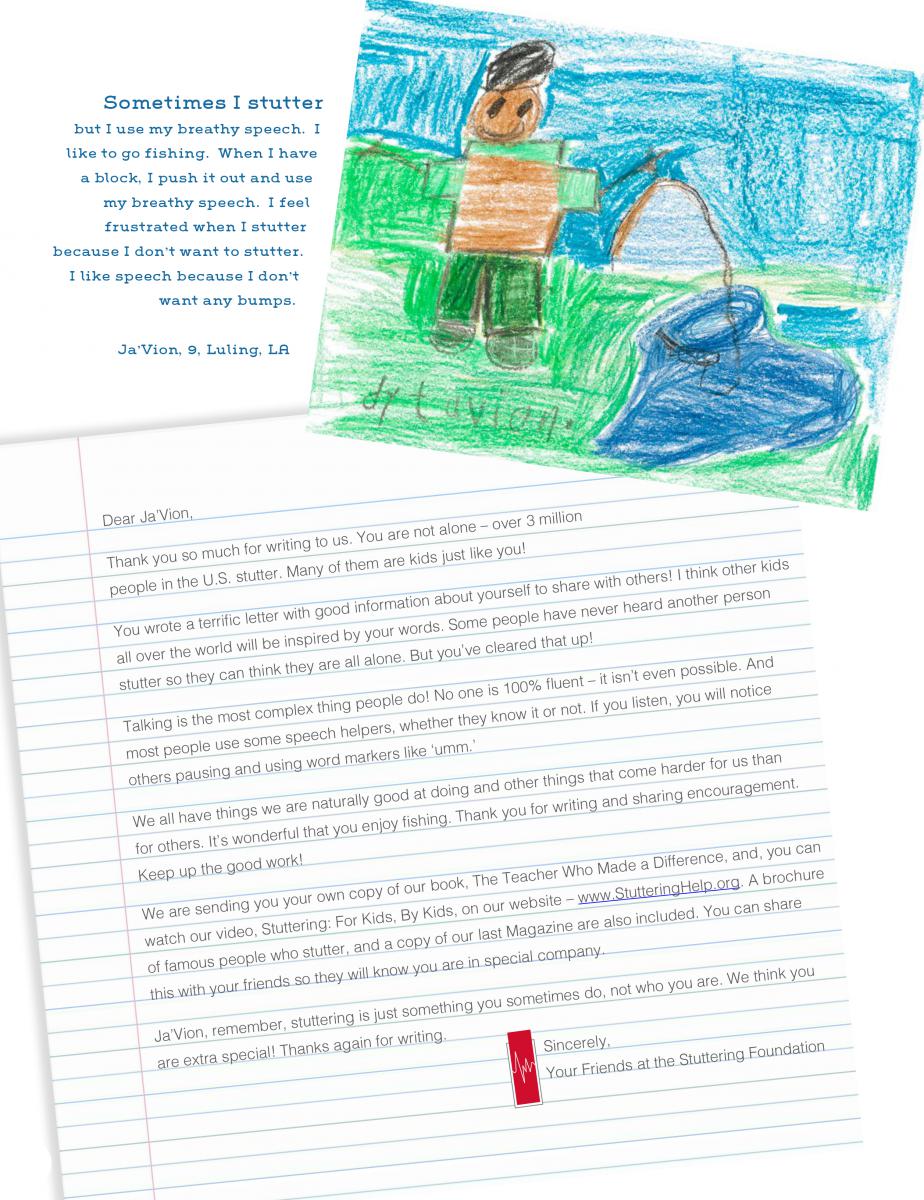 Sometimes I stutter
but I use my breathy speech.  I
like to go fishing.  When I have
a block, I push it out and use
my breathy speech.  I feel
frustrated when I stutter
because I don't want to stutter.
I like speech because I don't
want any bumps.
Ja'Vion, 9, Luling, LA
dy tavion.
Dear Ja'Vion,
Thank you so much for writing to us. You are not alone – over 3 million
people in the U.S. stutter. Many of them are kids just like you!
You wrote a terrific letter with good information about yourself to share with others! I think other kids
all over the world will be inspired by your words. Some people have never heard another person
stutter so they can think they are all alone. But you've cleared that up!
Talking is the most complex thing people do! No one is 100% fluent – it isn't even possible. And
most people use some speech helpers, whether they know it or not. If you listen, you will notice
others pausing and using word markers like 'umm.'
We all have things we are naturally good at doing and other things that come harder for us than
for others. It's wonderful that you enjoy fishing. Thank you for writing and sharing encouragement.
Keep up the good work!
We are sending you your own copy of our book, The Teacher Who Made a Difference, and, you can
watch our video, Stuttering: For Kids, By Kids, on our website – www.StutteringHelp.org. A brochure
of famous people who stutter, and a copy of our last Magazine are also included. You can share
this with your friends so they will know you are in special company.
Ja'Vion, remember, stuttering is just something you sometimes do, not who you are. We think you
are extra special! Thanks again for writing.
Sincerely,
Your Friends at the Stuttering Foundation